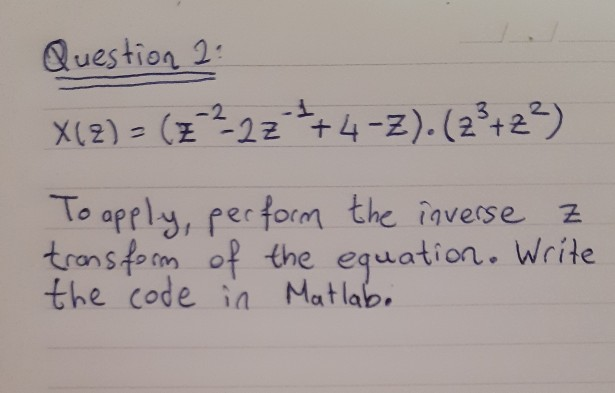 Question 2:
X(z) = (z⁻² - 2z⁻¹ + 4 - z) . (z³ + z²)
To apply, perform the inverse z
transform of the equation. Write
the code in Matlab.